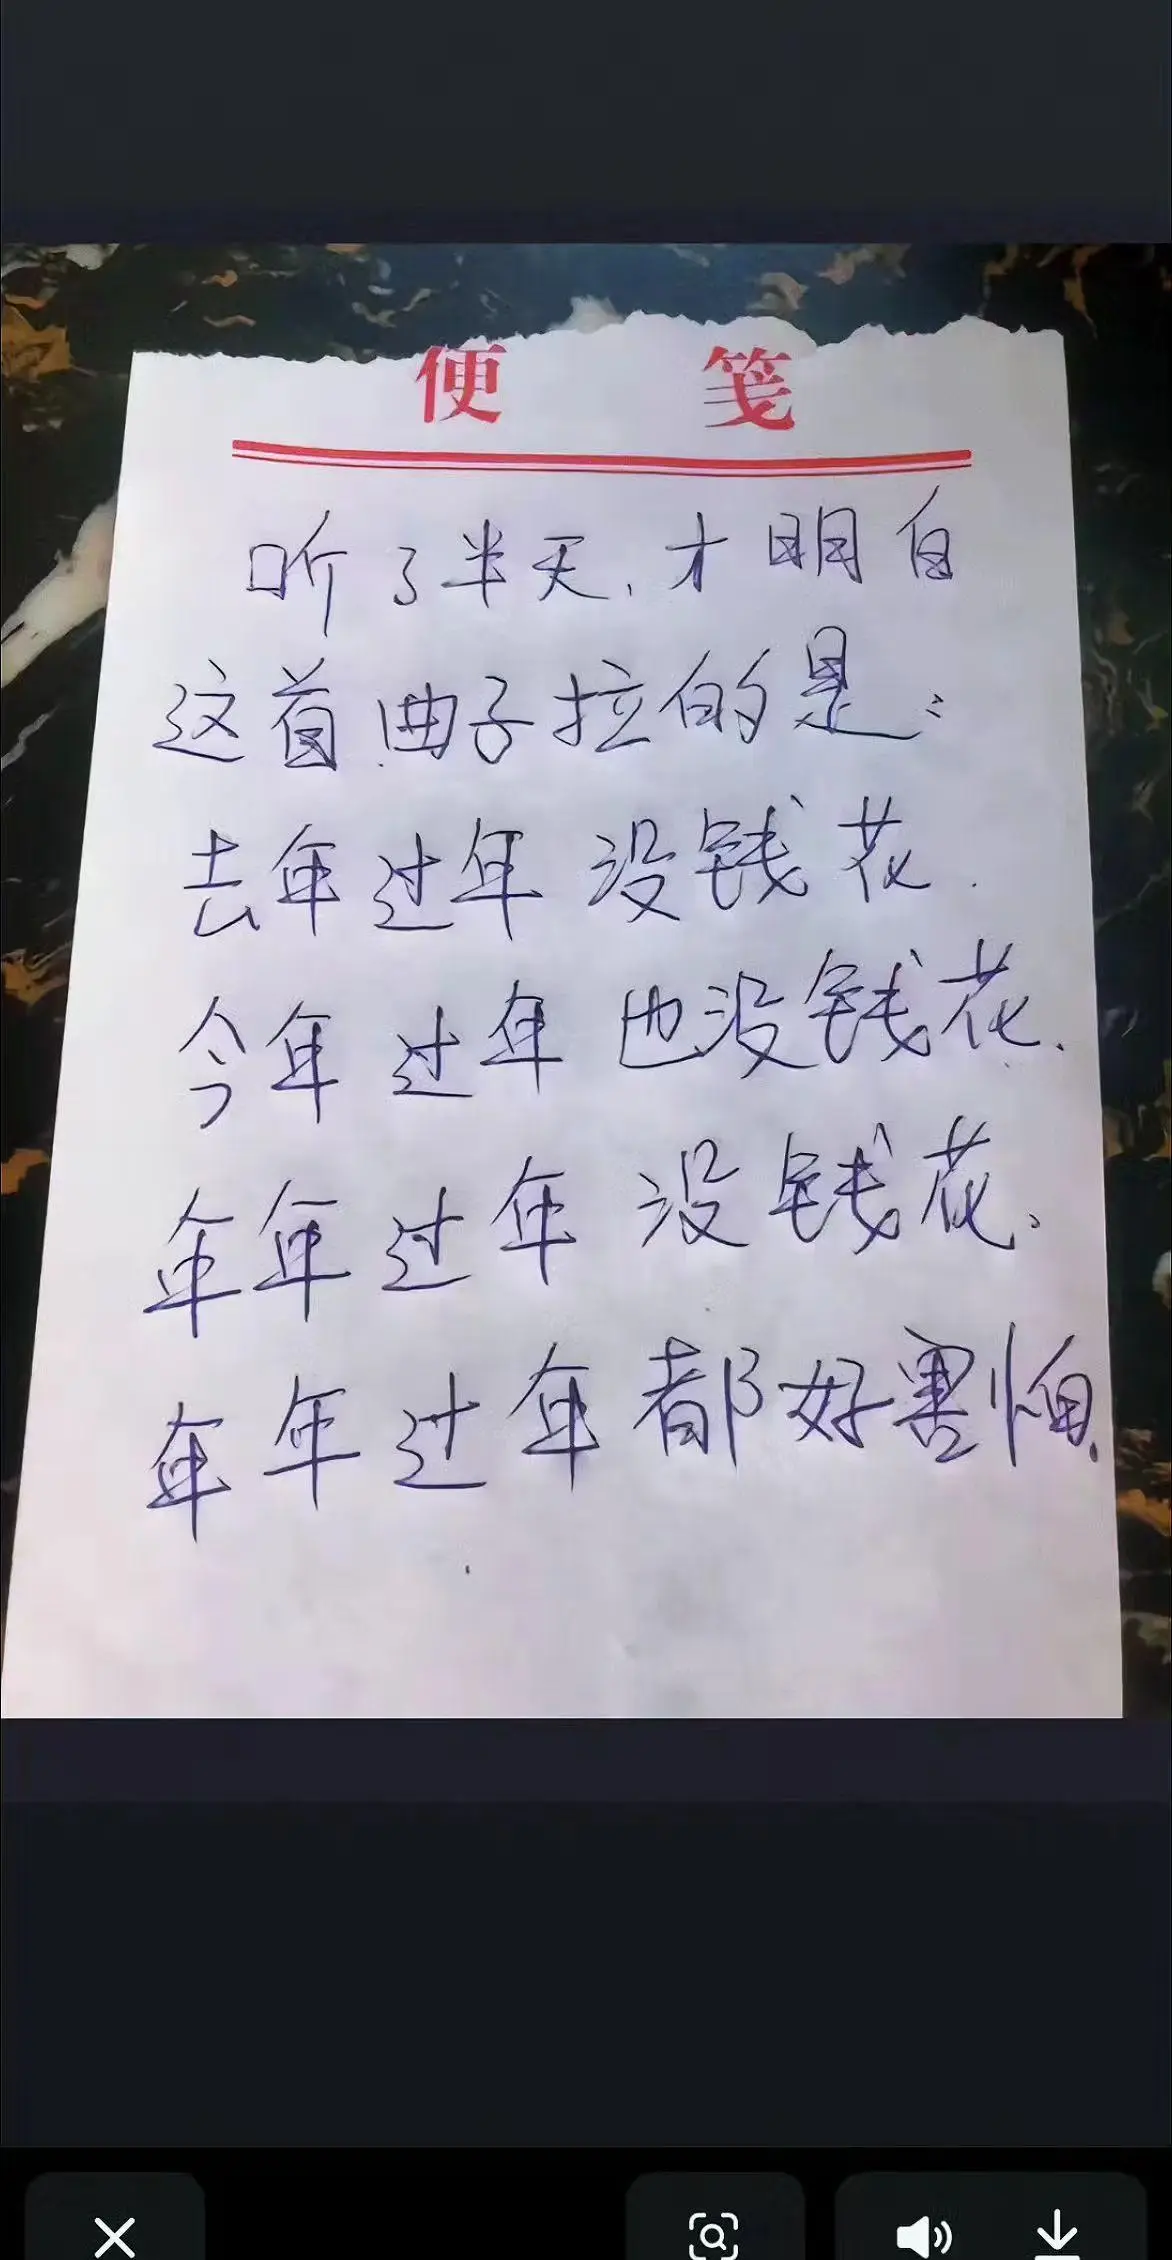 便 笺
听了半天,才明白
这首曲子拉的是:
去年过年没钱花.
今年过年也没钱花.
年年过年没钱花、
年年过年都好害怕.